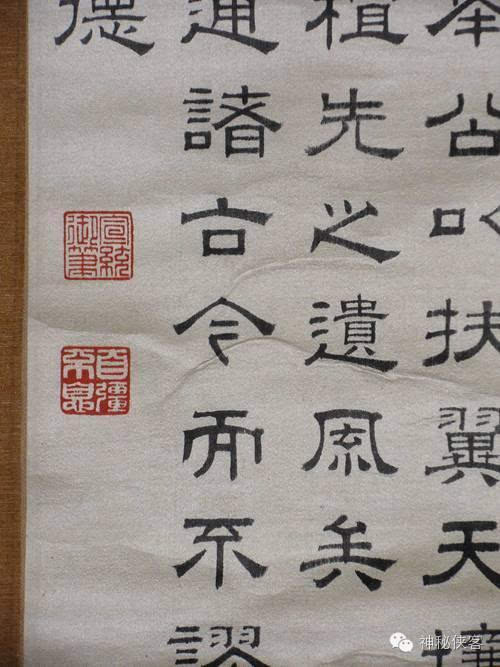 奉公以扶翼天壤
祖先之遺風矣
通諸古今而不謬
德
宣統御筆
自彊不息
神秘侠客